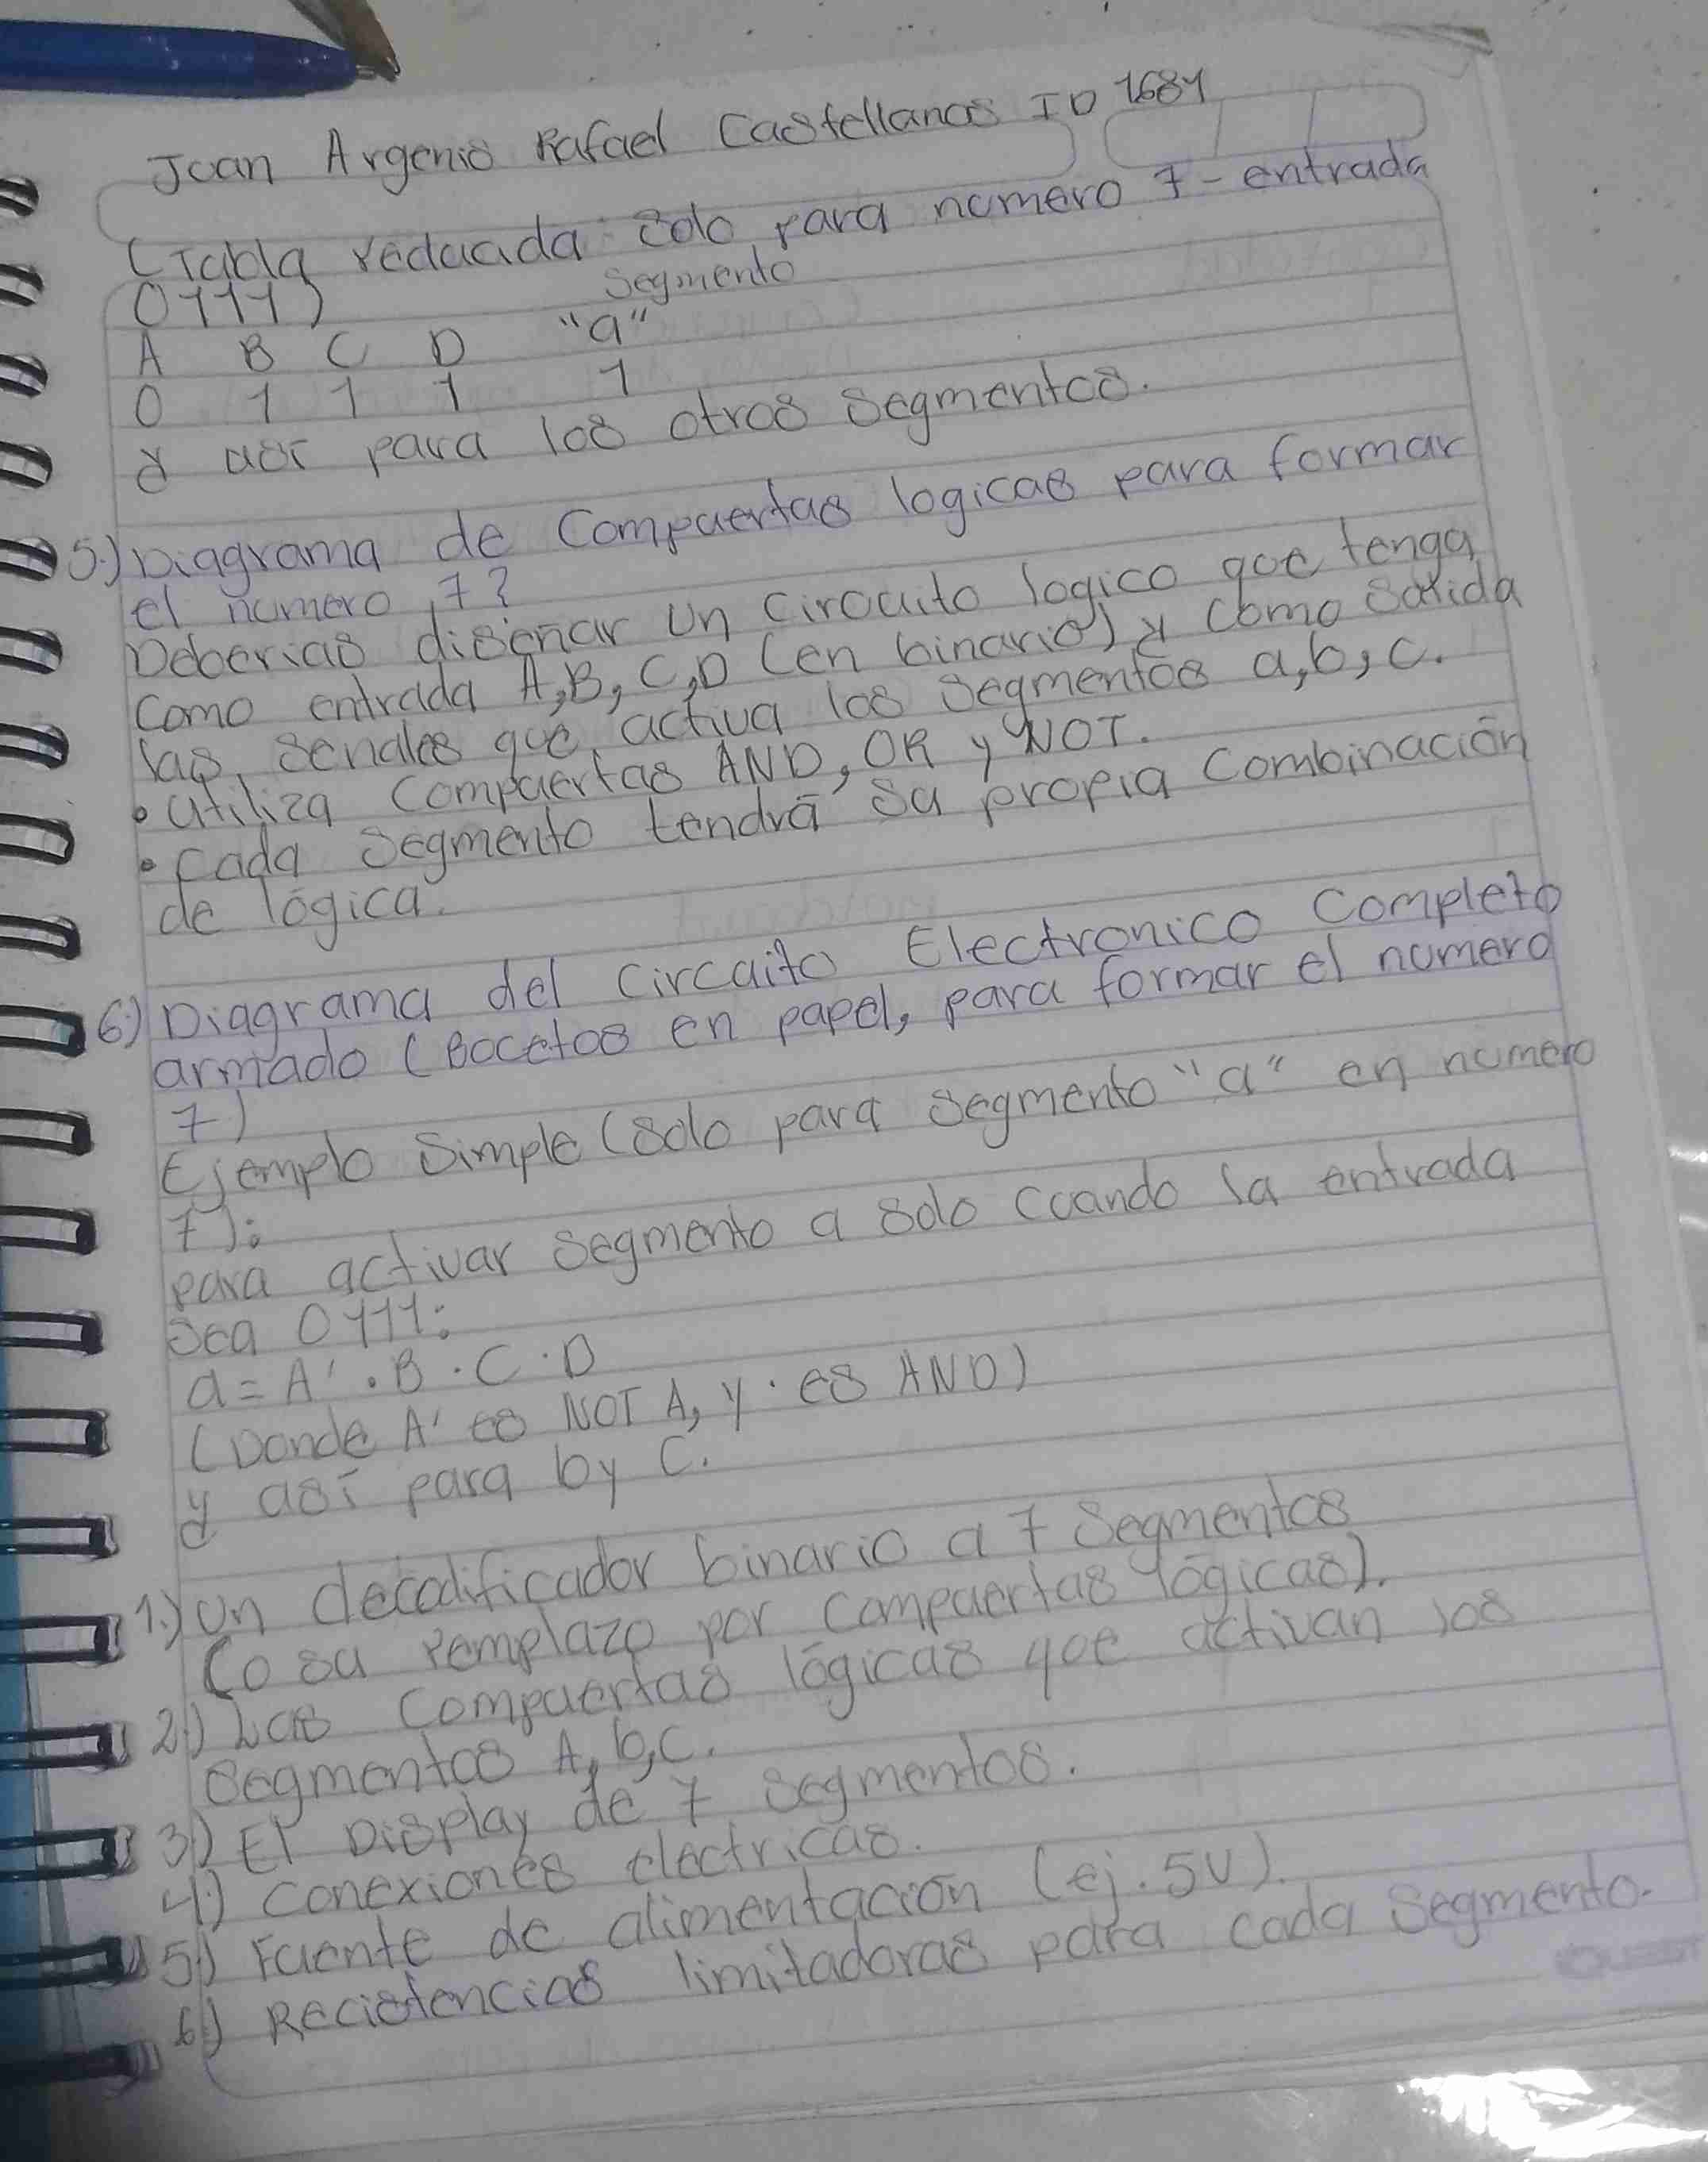 Juan Argenis Rafael Castellanos ID 1684
(Tabla reducida solo para numero 7 - entrada
0111)
Segmento
A B C D "a"
0 1 1 1 1
y así para los otros segmentos.
5.) Diagrama de Compuertas logicas para formar
el numero 7?
Deberias diseñar un circuito logico que tenga
Como entrada A,B,C,D (en binario) y como salida
las señales que activa los segmentos a,b,c.
• utiliza compuertas AND, OR y NOT.
• Cada segmento tendrá su propia combinación
de lógica.
6.) Diagrama del circuito Electronico completo
armado (Bocetos en papel, para formar el numero
7)
Ejemplo simple (solo para segmento "a" en numero
7):
para activar segmento a solo cuando la entrada
sea 0111:
a = A' . B . C . D
(Donde A' es NOT A, y · es AND)
y así para b y c.
1.) Un decodificador binario a 7 segmentos
(o su remplazo por compuertas lógicas).
2.) Las compuertas lógicas que activan los
segmentos A, b, c.
3.) El Display de 7 segmentos.
4.) Conexiones electricas.
5.) Fuente de alimentación (ej. 5V).
6.) Recistencias limitadoras para cada segmento.